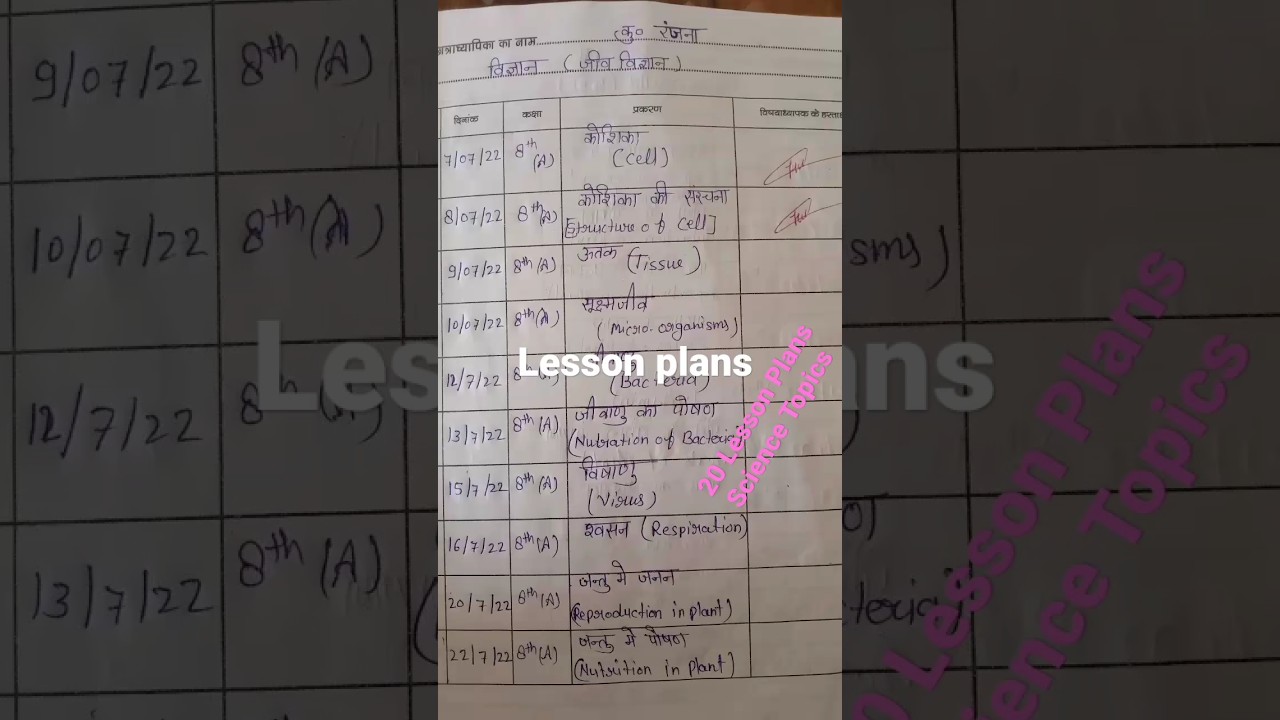 कु० रंजना
छात्राध्यापिका का नाम
विज्ञान (जीव विज्ञान)
दिनांक कक्षा प्रकरण विषयाध्यापक के हस्ता
7/07/22 8th (A) कोशिका
(Cell)
8/07/22 8th (A) कोशिका की संरचना
[Structure of Cell]
9/07/22 8th (A) ऊतक (Tissue)
10/07/22 8th (A) सूक्ष्मजीव
(Micro-organisms)
12/7/22 8th
(Bacteria)
13/7/22 8th (A) जीवाणु का पोषण
(Nutration of Bacteria)
15/7/22 8th (A) विषाणु
(Virus)
16/7/22 8th (A) श्वसन (Respiration)
20/7/22 8th (A) जन्तु मे जनन
(Reproduction in plant)
22/7/22 8th (A) जन्तु मे पोषण
(Nutrition in Plant)
Lesson plans
20 Lesson Plans
Science Topics